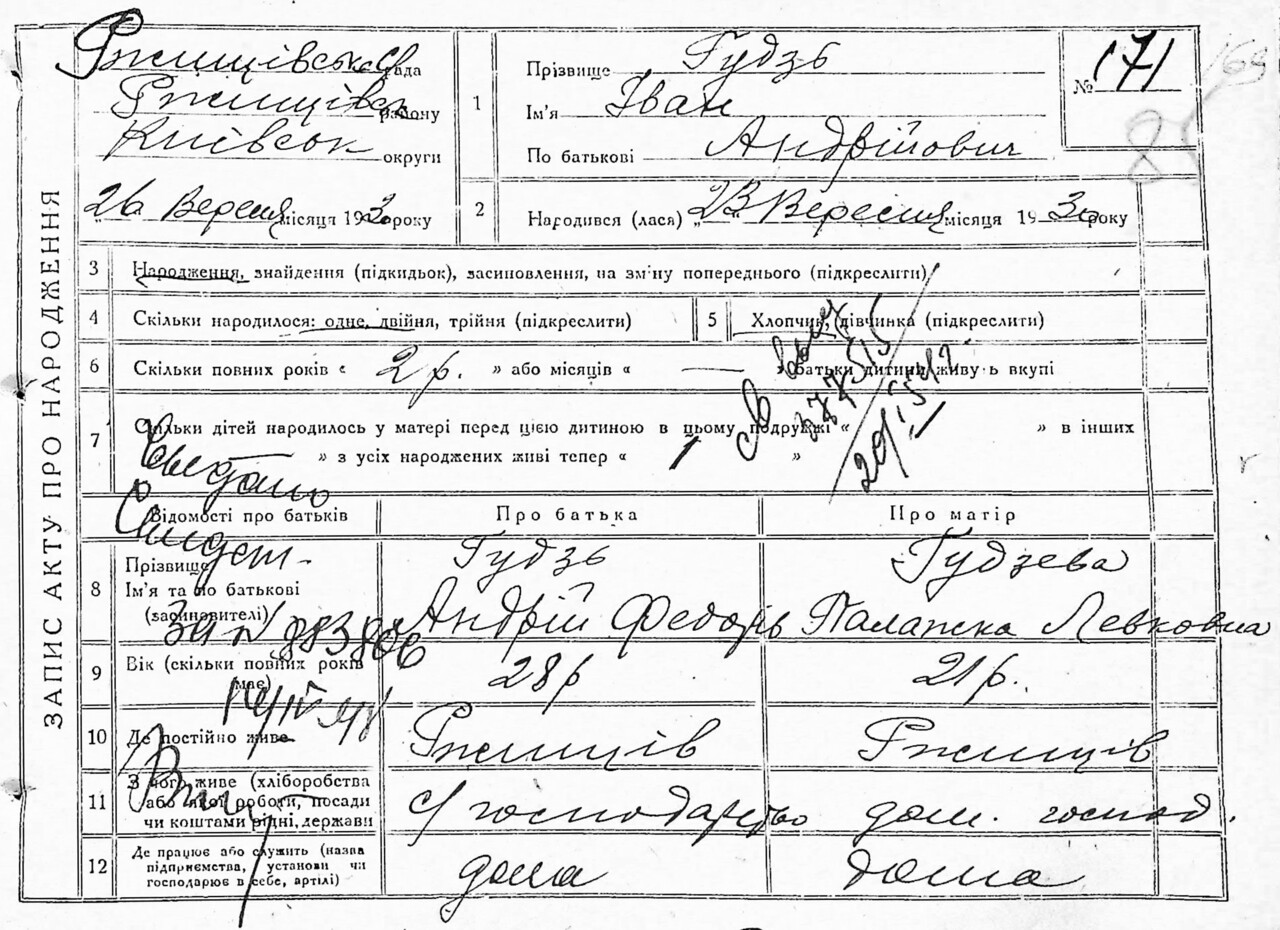 ЗАПИС АКТУ ПРО НАРОДЖЕННЯ
Ржищівська рада
Ржищівськ району
Київськ округи
26 Вересня місяця 1930 року
1 Прізвище Гудзь
Ім'я Іван
По батькові Андрійович
№ 171
169
2 Народився (лася) „23" Вересня місяця 1930 року
3 Народження, знайдення (підкидьок), засиновлення, на зміну попереднього (підкреслити)
4 Скільки народилося: одне, двійня, трійня (підкреслити)
5 Хлопчик, дівчинка (підкреслити)
6 Скільки повних років « 2 р. » або місяців « — » батьки дитини живуть вкупі
7 Скільки дітей народилось у матері перед цією дитиною в цьому подружжі « » в інших
» з усіх народжених живі тепер « 1 »
377515
Видано
Свидет.
Відомості про батьків Про батька Про матір
8 Прізвище Гудзь Гудзева
Ім'я та по батькові
(засиновителі) Андрій Федорів Палажка Левковна
9 Вік (скільки повних років має) 28 р 21 р.
10 Де постійно живе Ржищів Ржищів
11 З чого живе (хліборобства
або якої роботи, посади
чи коштами рідні, держави с/господарство дом. господ.
12 Де працює або служить (назва
підприємства, установи чи
господарює в себе, артілі) дома дома